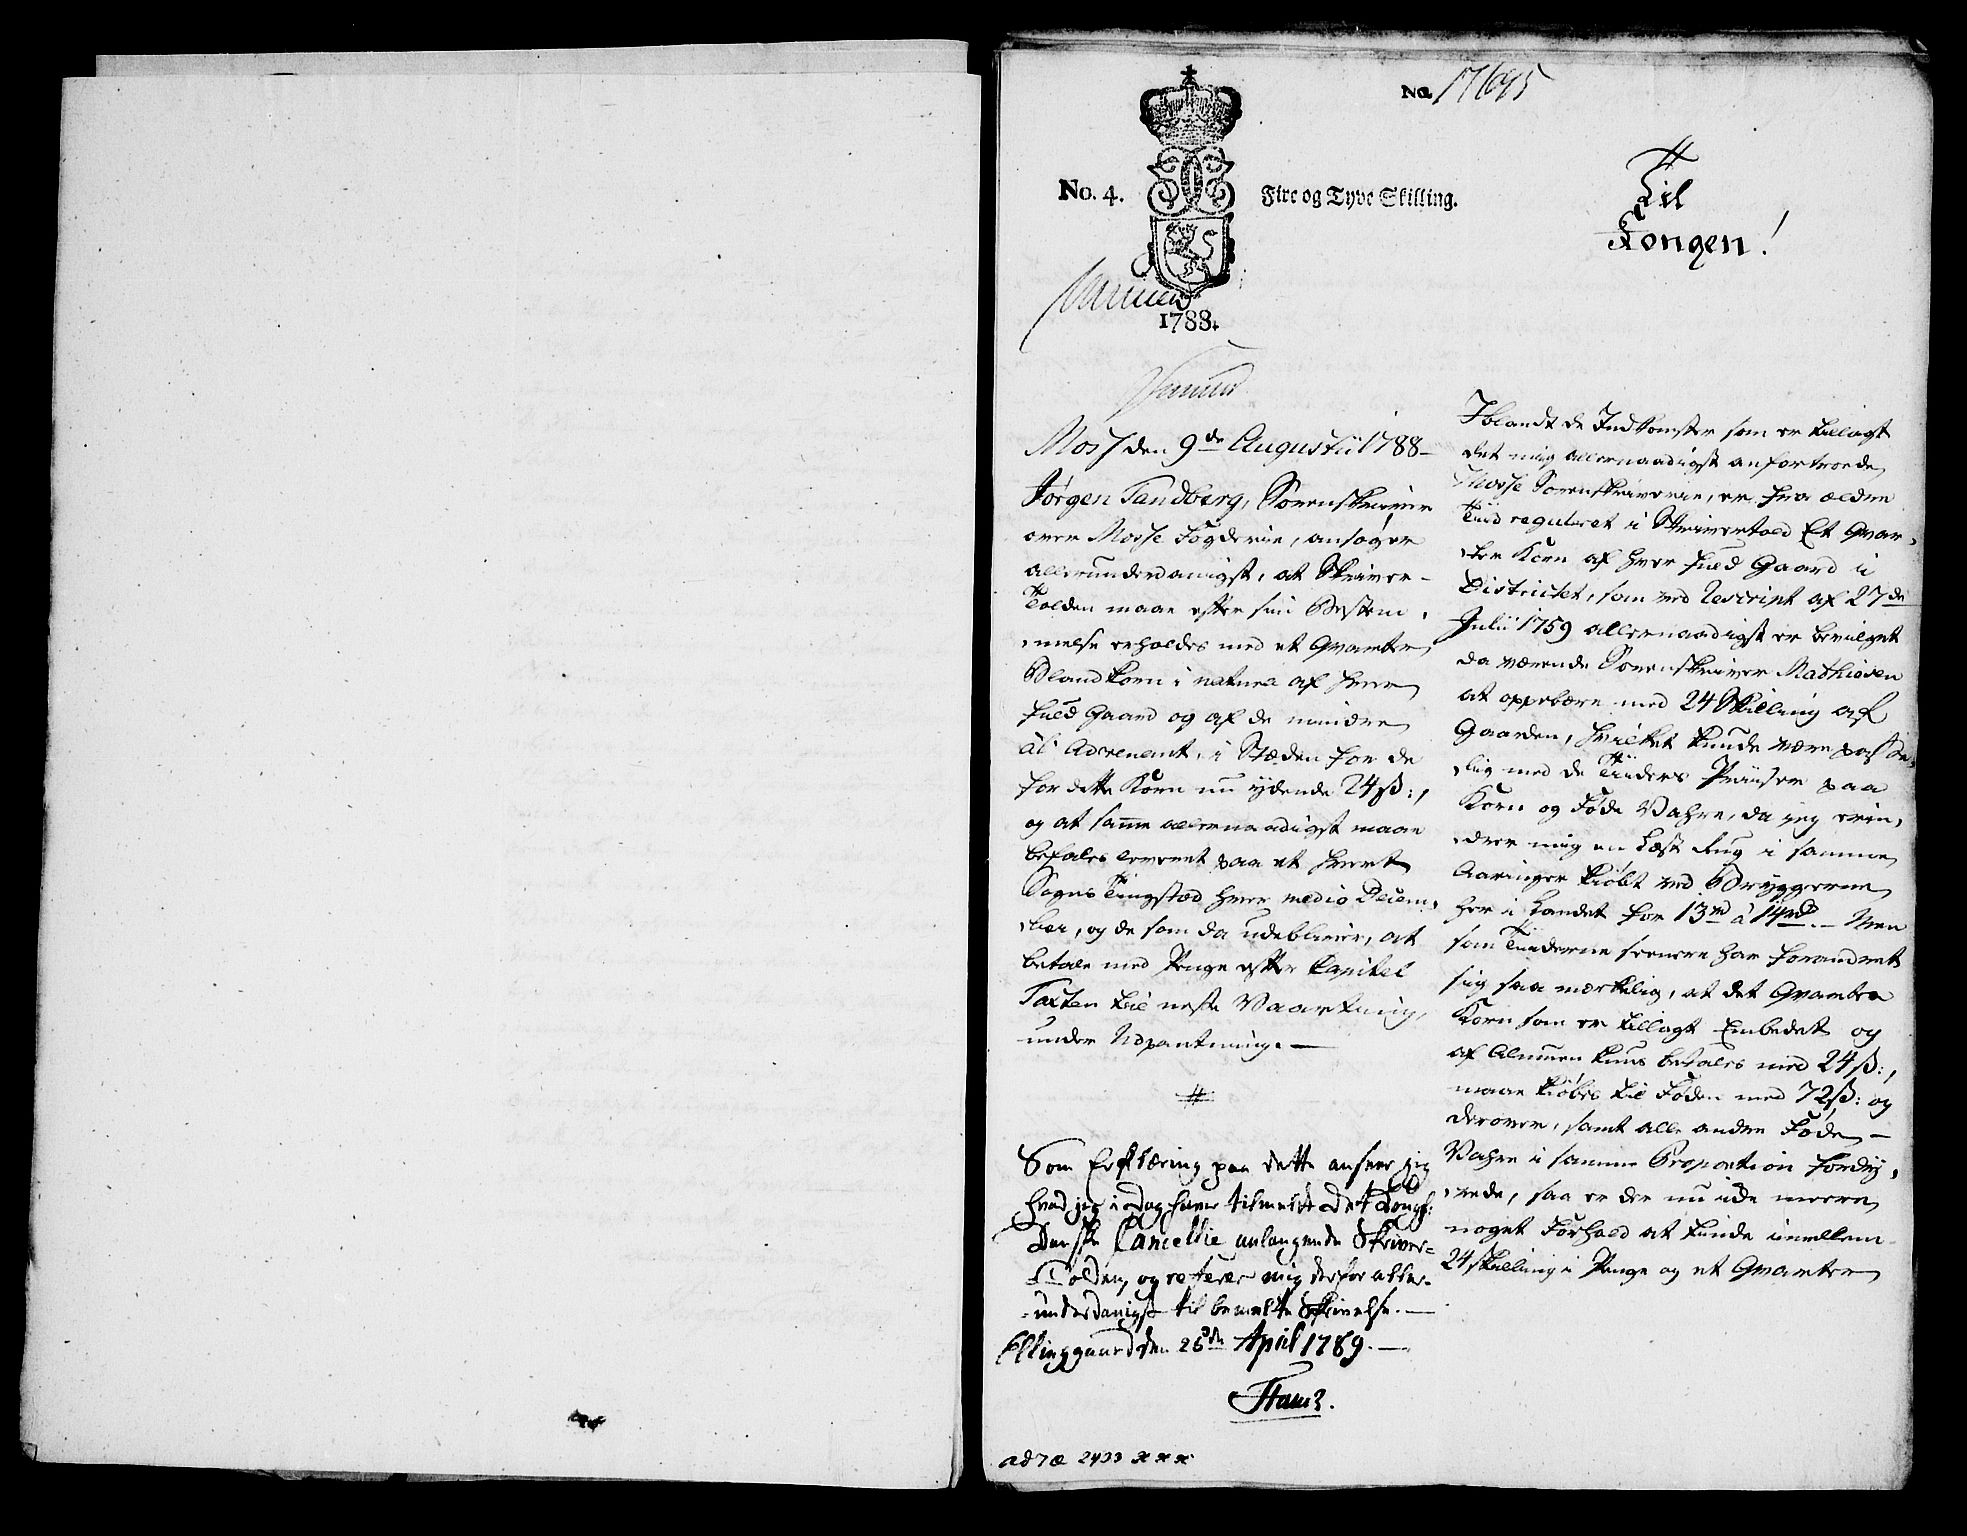 No. 17695
No. 4. Fire og Tyve Skilling.
1788.
Til
Kongen!
Moss den 9de Augustii 1788
Jørgen Sandberg, Sorenskriver
over Mosse Fogderie, ansøger
allerunderdanigst, at Skriver-
Tolden maae efter sin Bestem-
melse erholdes med et Qvarter
Blandkorn i natura af hver
fuld Gaard og af de mindre
al' Advenant, i Stæden for de
for dette Korn nu ydende 24 ß:,
og at samme allernaadigst maae
befales leveret paa et hvert
Sogns Tingstæd hver medio Decem-
ber, og de som da udebliver, at
betale med Penge efter Capitel
Taxten til neste Vaarting,
under Udpantning. —
Som Erklæring paa dette anseer jeg
hvad jeg i Dag haver tilmeldt Det Kongl:
Danske Cancellie anlangende Skriver-
Tolden, og referer mig derfor aller-
underdanigst til bemelte Skrivelse. —
Ellinggaard den 26de April 1789. —
ad 7æ 2433
Iblandt de Indkomster som er tillagt
det mig allernaadigst anfortroede
Mosse Sorenskriverie, er fra ældre
Tiid reguleret i Skrivertold Et Qvar-
ter Korn af hver fuld Gaard i
Districtet, som ved Rescript af 27de
Julii 1759 allernaadigst er bevilget
da værende Sorenskriver Mathiesen
at oppebære med 24 Skilling af
Gaarden, hvilket kunde være passe-
lig med de Tiiders Priiser paa
Korn og Føde Vahre, da jeg erin-
drer mig en Læst Rug i samme
Aaringer kiøbt ved Bryggerne
her i Landet for 13rd à 14rd. — Men
som Tiiderne seenere har forandret
sig saa mærkelig, at det Qvarter
Korn som er tillagt Embedet og
af Almuen kuns betales med 24 ß:,
maae kiøbes til Føden med 72 ß: og
derover, samt alle andre Føde-
Vahre i samme Proportion fordy-
rede, saa er der nu icke meere
noget Forhold at finde imellem
24 Skilling i Penge og et Qvarter